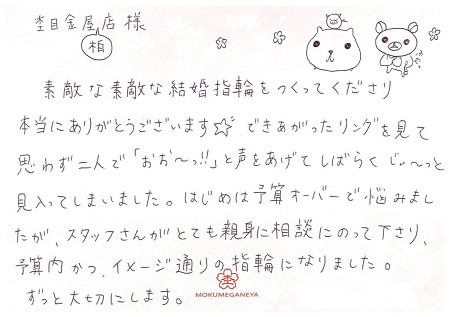 杢目金屋店様
柏
素敵な素敵な結婚指輪をつくってくださり
本当にありがとうございます☆ できあがったリングを見て
思わず二人で「おお〜っ!!」と声をあげてしばらくじぃ〜っと
見入ってしまいました。はじめは予算オーバーで悩みまし
たが、スタッフさんがとても親身に相談にのって下さり、
予算内かつ、イメージ通りの指輪になりました。
ずっと大切にします。
MOKUMEGANEYA